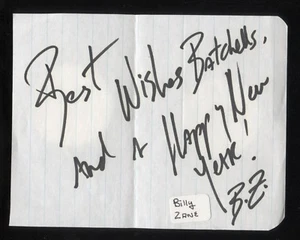 Best
Wishes Batchells,
And A Happy New
Year!
B.Z.
Billy
ZANE